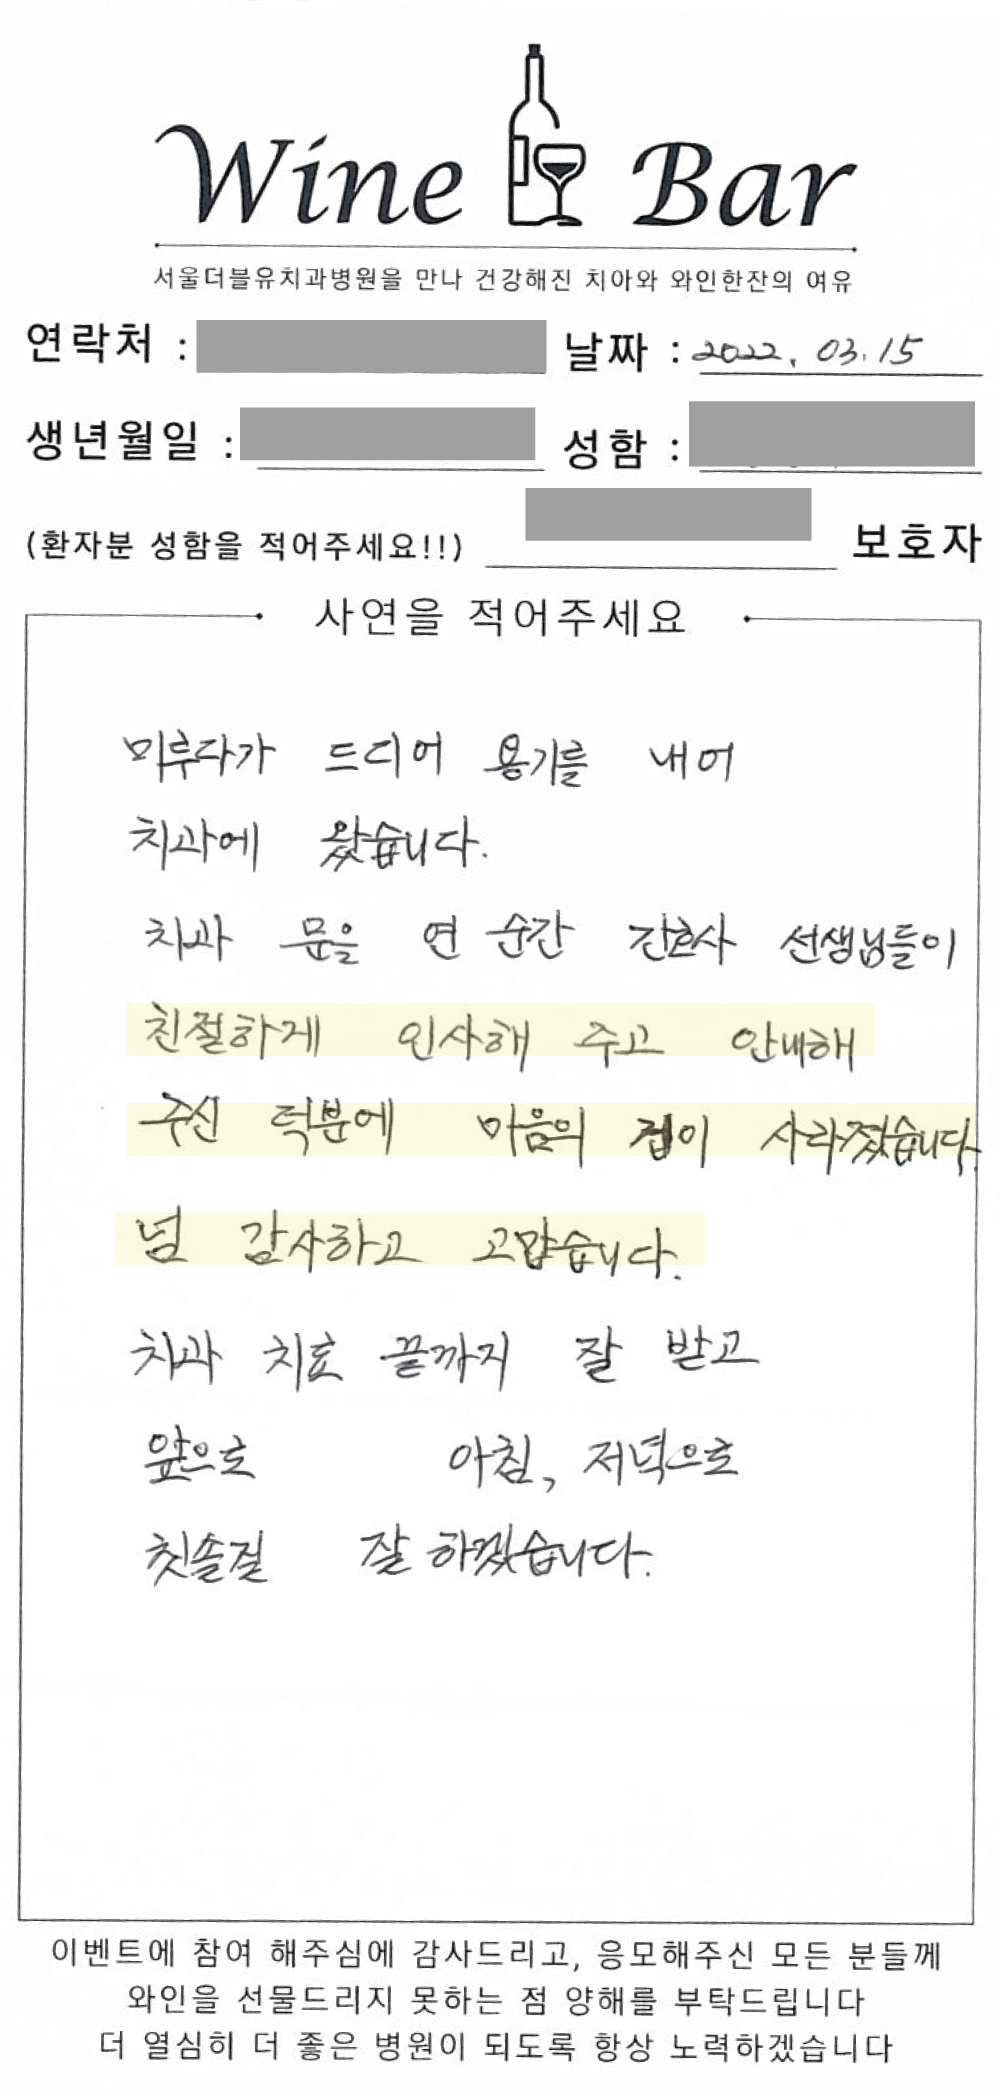 Wine Bar
서울더블유치과병원을 만나 건강해진 치아와 와인한잔의 여유
연락처 : 날짜 : 2022. 03. 15
생년월일 : 성함 :
(환자분 성함을 적어주세요!!) 보호자
사연을 적어주세요
미루다가 드디어 용기를 내어
치과에 왔습니다.
치과 문을 연 순간 간호사 선생님들이
친절하게 인사해 주고 안내해
주신 덕분에 마음의 겁이 사라졌습니다.
넘 감사하고 고맙습니다.
치과 치료 끝까지 잘 받고
앞으로 아침, 저녁으로
칫솔질 잘 하겠습니다.
이벤트에 참여 해주심에 감사드리고, 응모해주신 모든 분들께
와인을 선물드리지 못하는 점 양해를 부탁드립니다
더 열심히 더 좋은 병원이 되도록 항상 노력하겠습니다